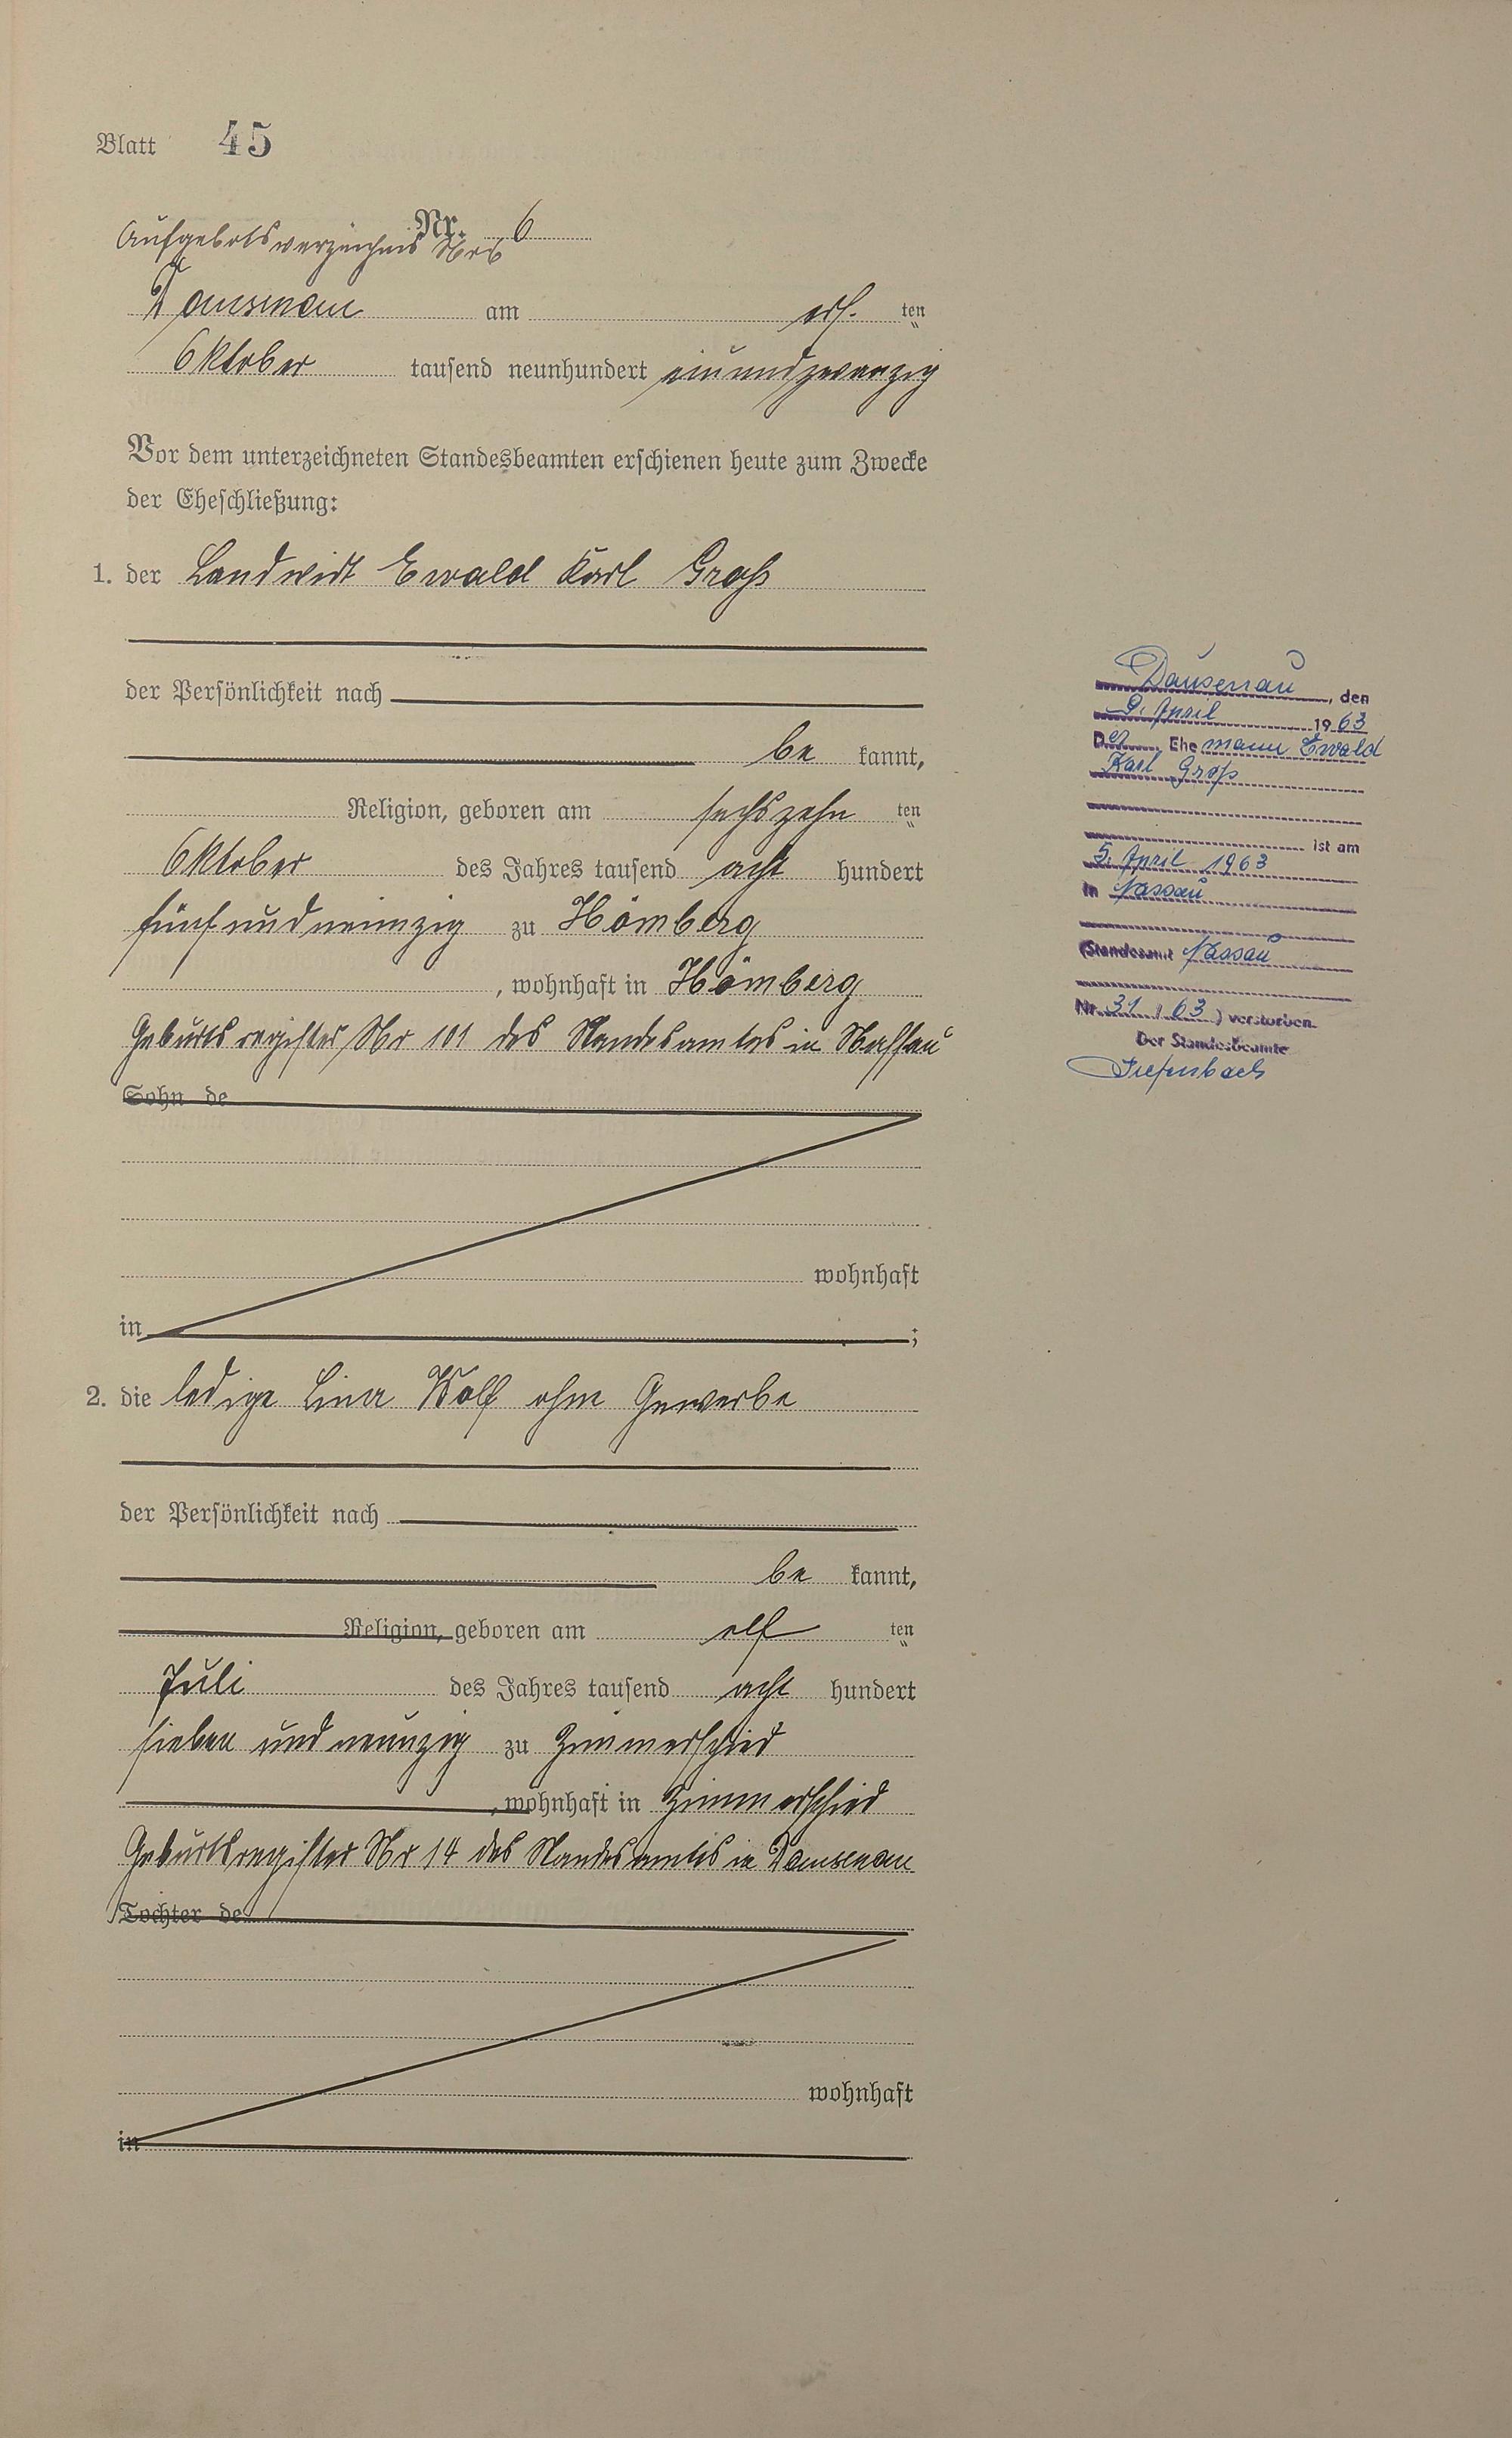 Blatt 45
Nr. 6
Aufgebotsverzeichnis Nr 6
Dausenau am ach ten
Oktober tausend neunhundert einundzwanzig
Vor dem unterzeichneten Standesbeamten erschienen heute zum Zwecke
der Eheschließung:
1. der Landwirt Ewald Karl Groß
der Persönlichkeit nach
be kannt,
Religion, geboren am sechszehn ten
Oktober des Jahres tausend acht hundert
fünfundneunzig zu Hömberg
, wohnhaft in Hömberg
Geburtsregister Nr 101 des Standesamtes in Nassau
Sohn de
wohnhaft
in ;
2. die ledige Lina Wolf ohne Gewerbe
der Persönlichkeit nach
be kannt,
Religion, geboren am elf ten
Juli des Jahres tausend acht hundert
sieben und neunzig zu Zimmerschied
, wohnhaft in Zimmerschied
Geburtsregister Nr 14 des Standesamtes in Dausenau
Tochter de
wohnhaft
in
Dausenau, den
9. April 1963
Der Ehemann Ewald
Karl Groß
ist am
5. April 1963
in Nassau
(Standesamt Nassau
Nr. 31 / 63) verstorben.
Der Standesbeamte
Diefenbach